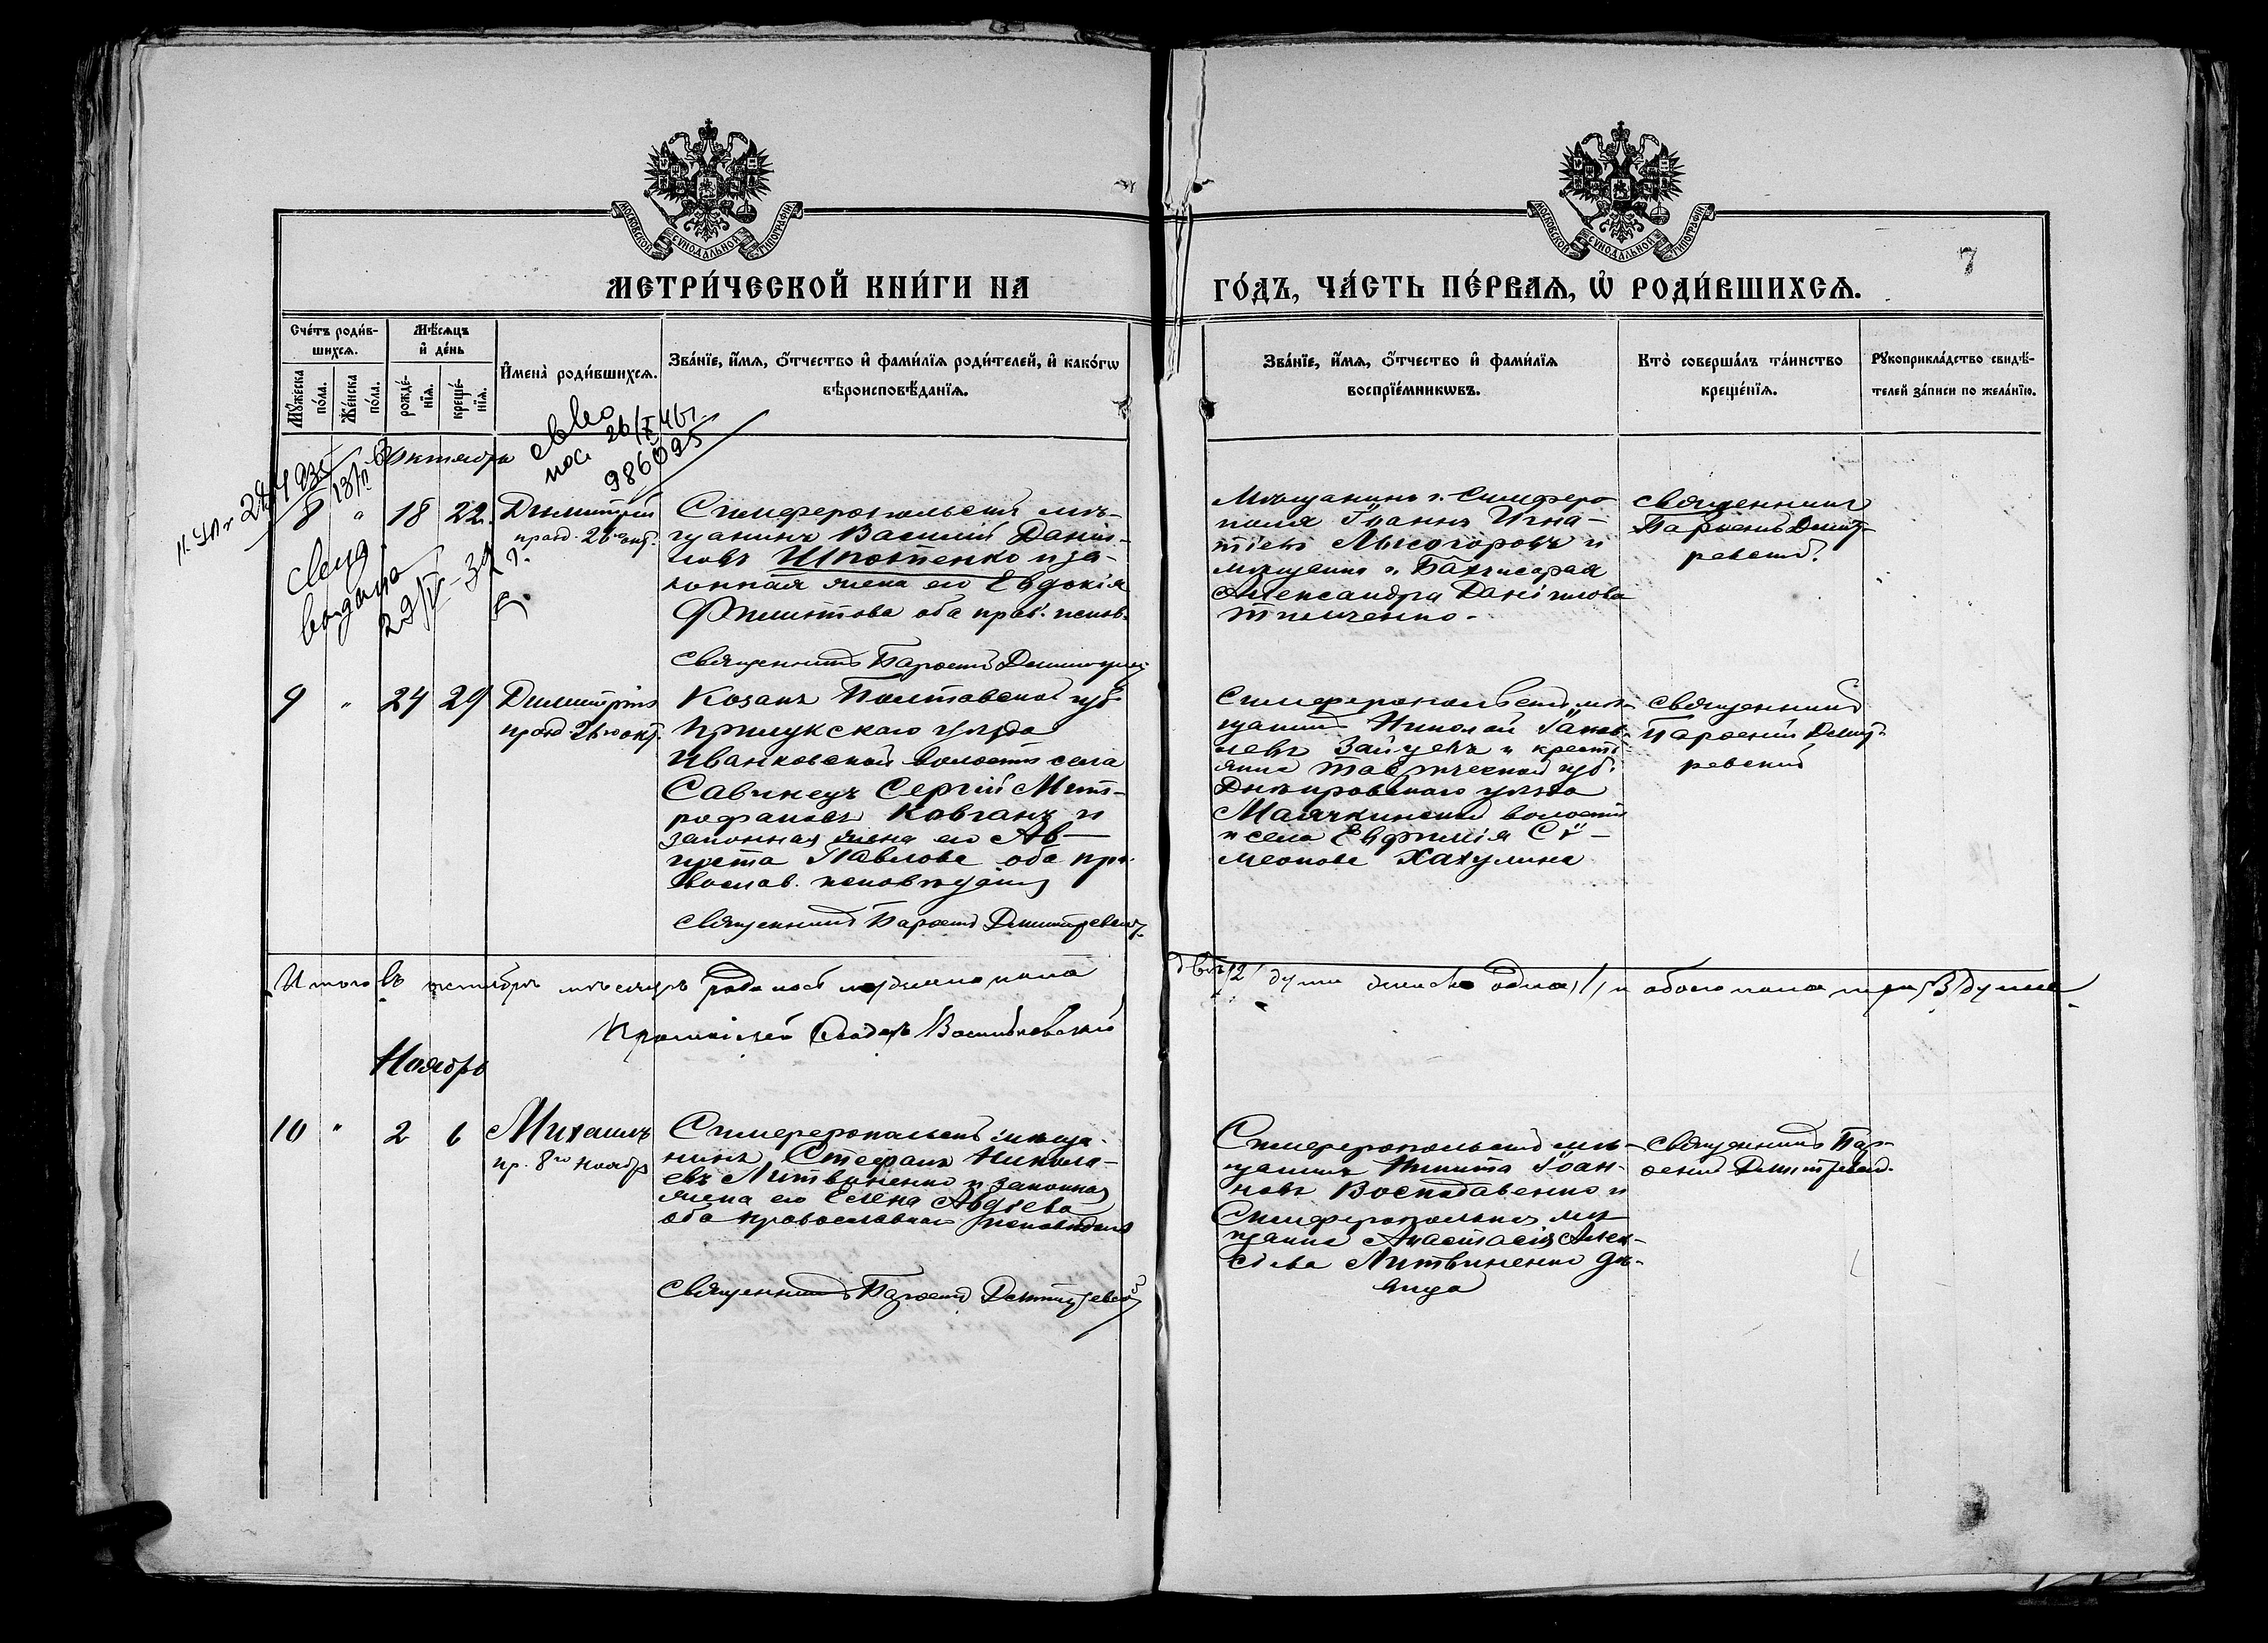 МОСКОВСКОЙ СУНОДАЛЬНОЙ ТИПОГРАФІИ
МОСКОВСКОЙ СУНОДАЛЬНОЙ ТИПОГРАФІИ
7
МЕТРИ́ЧЕСКОЙ КНИ́ГИ НА
ГО́ДЪ, ЧА́СТЬ ПЕ́РВАЯ, Ѡ҆ РОДИ́ВШИХСЯ.
Сче́тъ роди́в-
шихся.
Мѣ́сяцъ
и҆ де́нь
Мꙋ́жеска
по́ла.
Же́нска
по́ла.
рожде́-
нїя.
креще́-
нїя.
И҆мена̀ роди́вшихся.
Зва́нїе, и҆́мя, ѻ҆́тчество и҆ фами́лїя роди́телей, и҆ како́гѡ
вѣроисповѣ́данїя.
Зва́нїе, и҆́мя, ѻ҆́тчество и҆ фами́лїя
воспрїе́мникѡвъ.
Кто̀ соверша́лъ та́инство
креще́нїя.
Рꙋкоприкла́дство свидѣ́-
телей за́писи по жела́нїю.
26/X 46г.
986095
Октябрь
8 " 18 22. Димитрій
празд. 26 окт.
Симферопольскій мѣ-
щанинъ Василій Данiи-
ловъ Шпотенко и за-
конная жена его Евдокія
Филиппова оба прав. испов.
Священникъ Парѳеній Димитревскій
Мѣщанинъ г. Симферо-
поля Іоаннъ Игна-
тіевъ Лысогоровъ и
мѣщанка г. Бахчисарая
Александра Даніилова
Тимченко.
Священникъ
Парѳеній Димит-
ревскій.
выдана
9 " 24 29 Димитрій
празд. 26го окт.
Козакъ Полтавской губ.
Прилукскаго уѣзда
Иванковской волости села
Савинецъ Сергій Мит-
рофановъ Ковганъ и
законная жена его Ав-
густа Павлова оба пра-
вослав. исповѣданія
Священникъ Парѳеній Димитревскій
Симферопольскій мѣ-
щанинъ Николай Іаков-
левъ Зайцевъ и кресть-
янка Таврической губ.
Днѣпровскаго уѣзда
Маячкинской волости
и села Евфимія Си-
меонова Хахулина
Священникъ
Парѳеній Димит-
ревскій
Итого въ октябрѣ мѣсяцѣ родилось мужеска пола
двѣ /2/ души женска одна /1/ и обоего пола три /3/ души
Протоіерей Васильковскій
Ноябрь
10 " 2 6 Михаилъ
пр. 8го ноябр
Симферопольскій мѣща-
нинъ Стефанъ Никола-
евъ Литвиненко и законная
жена его Елена Авдіева
оба православнаго исповѣданія
Священникъ Парѳеній Димитревскій
Симферопольскій мѣ-
щанинъ Никита Іоан-
новъ и
Симферопольская мѣ-
щанка Анастасія Алек-
сіева Литвиненко дѣ-
вица
Священникъ Пар-
ѳеній Димитревскій.